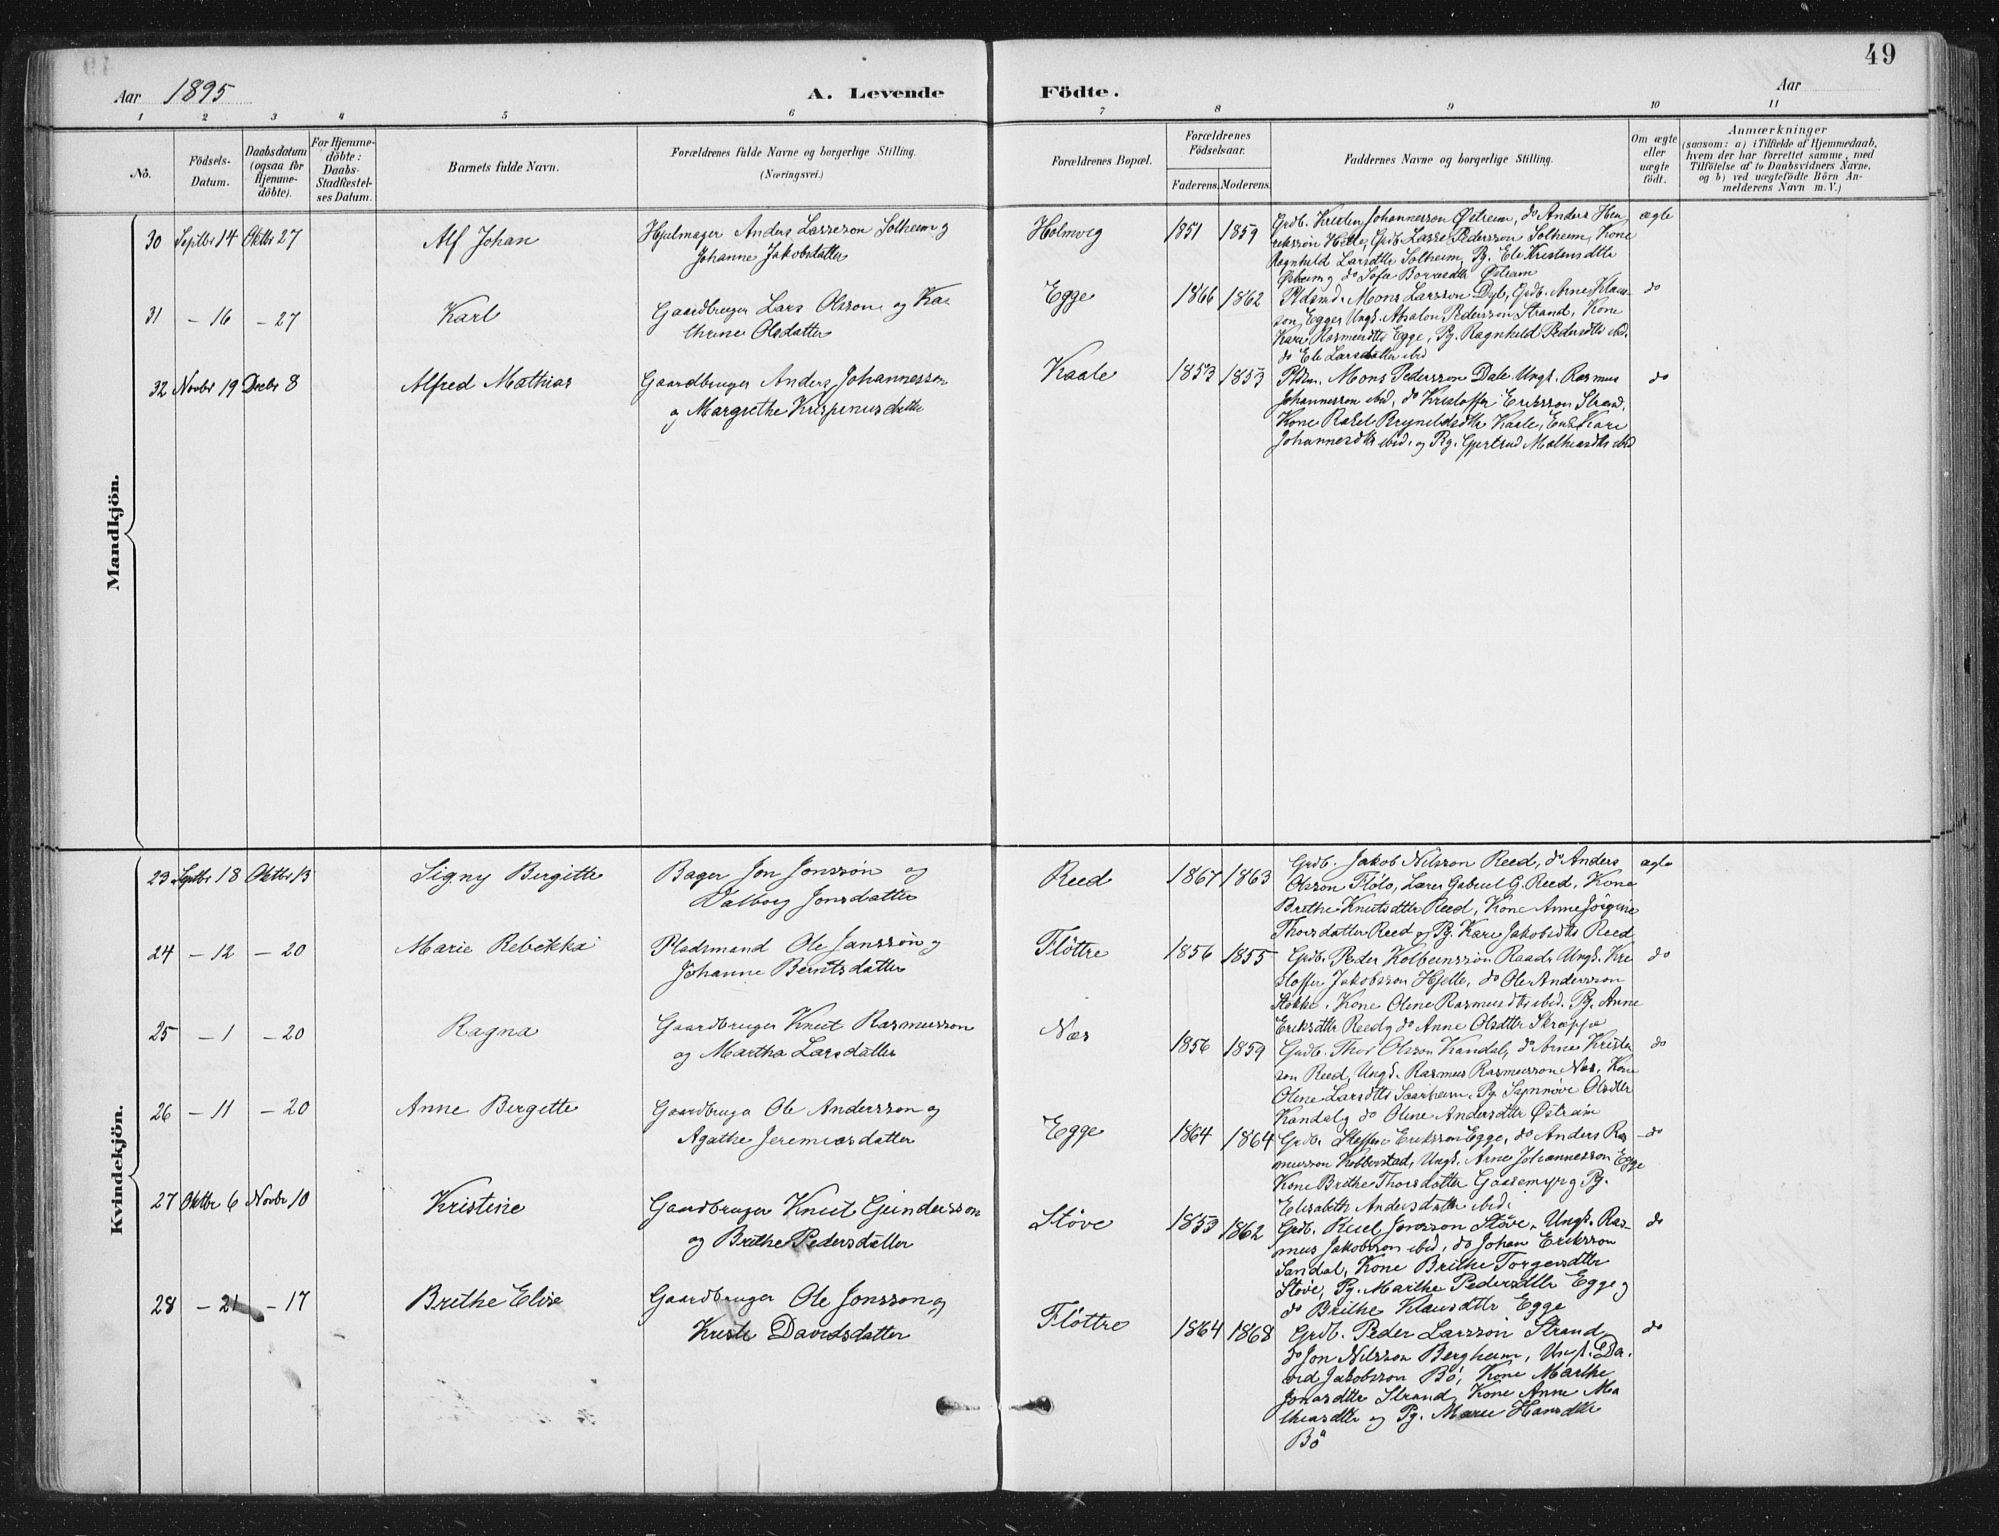 49
Aar 1895
A. Levende Födte.
Aar
1 2 3 4 5 6 7 8 9 10 11
No.
Födsels-Datum.
Daabsdatum (ogsaa for Hjemme-döbte).
For Hjemme-döbte: Daabs-Stadfestel-ses Datum.
Barnets fulde Navn.
Forældrenes fulde Navne og borgerlige Stilling. (Næringsvei.)
Forældrenes Bopæl.
Forældrenes Födselsaar.
Faderens. Moderens.
Faddernes Navne og borgerlige Stilling.
Om ægte eller uægte födt.
Anmærkninger
(saasom: a) i Tilfælde af Hjemmedaab, hvem der har forrettet samme, med Tilföielse af to Daabsvidners Navne, og b) ved uægtefödte Börn Anmelderens Navn m. V.)
Mandkjön.
30 Septbr 14 Oktbr 27 Alf Johan Hjulmager Anders Lasseson Solheim og
Johanne Jakobsdatter
Holmvig 1851 1859 ægte
Grdb. Kristen Johannesson Østrem, do Anders Hen
riksson Hjelle, Grdb. Lasse Pedersson Solheim, Kone
Ragnhild Larsdttr Solheim, Pg. Eli Kristensdttr
Østrem og do Sofie Østrem
31 – 16 – 27 Karl Gaardbruger Lars Olsson og Ka
thrine Olsdatter
Egge 1866 1862 do
Pldsmd. Mons Larsson Dyb, Grdb. Arne Klaus
son Egge, Ungk. Absalon Pedersson Strand, Kone
Kari Rasmusdttr Egge, Pg. Ragnhild Pedersdttr ibid.
do Eli Larsdatter ibid
32 Novbr 19 Decbr 8 Alfred Mathias Gaardbruger Anders Johannesson
og Margrethe Krispinusdatter
Kaale 1853 1853 do
Pldsm. Mons Pedersson Dale, Ungk. Rasmus
Johannesson ibid, do Kristoffer Eriksson Strand,
Kone Rakel Brynildsdttr Kaale, Enke Kari
Johannesdttr ibid. og Pg. Gjertrud Mathiasdttr ibid
Kvindekjön.
23 Septbr 18 Oktbr 13 Signy Bergitte Bager Jon Jonssøn og
Valborg Jonsdatter
Reed 1867 1863 ægte
Grdb. Jakob Nilsson Reed, do Anders
Olsson Fløtø, Lærer Gabriel G. Reed, Kone
Brithe Knutsdttr Reed, Kone Anne Jørgine
Thorsdatter Reed og Pg. Kari Jakobsdttr Reed
24 – 12 – 20 Marie Rebekka Pladsmand Ole Janssøn og
Johanne Berntsdatter
Fløttre 1856 1855 do
Grdb. Peder Kolbeinssøn Raad, Ungk. Kri
stoffer Jakobsson Hjelle, do Ole Andersson
Stokke, Kone Oline Rasmusdttr ibid. Pg. Anne
Eriksdttr Reed og do Anne Olsdttr Skrøppa
25 – 1 – 20 Ragna Gaardbruger Knut Rasmusson
og Martha Larsdatter
Næs 1856 1859 do
Grdb. Thor Olsson Kandal, do Arne Kristen
son Reed, Ungk. Rasmus Rasmusson Næs, Kone
Oline Larsdttr Saarheim, Pg. Synnøve Olsdttr
Kandal og do Oline Andersdttr Østrem
26 – 11 – 20 Anne Bergitte Gaardbruger Ole Andersson og
Agathe Jeremiasdatter
Egge 1864 1864 do
Grdb. Steffen Eriksson Egge, do Anders Ras
musson Kobberstad, Ungk. Arne Johannesson Egge
Kone Brithe Thorsdatter Gaasemyr og Pg.
Elisabeth Andersdatter ibid.
27 Oktbr 6 Novbr 10 Kristine Gaardbruger Knut Gundersson
og Brithe Pedersdatter
Støve 1853 1862 do
Grdb. Jonsson Støve, Ungk. Ras
mus Jakobsson ibid, do Johan Eriksson
Sandal, Kone Brithe Torgersdttr
Støve, Pg. Marthe Pedersdttr Egge og
do Brithe Klausdttr Egge
28 – 21 – 17 Brithe Elise Gaardbruger Ole Jonsson og
Kristi Davidsdatter
Fløttre 1864 1868 do
Grdb. Peder Larsson Strand,
do Jon Nilsson Bergheim, Ungk. Da
vid Jakobsson Bö, Kone Marthe
Jonasdttr Strand, Kone Anne Ma
thiasdttr og Pg. Marie Hansdttr
Bö